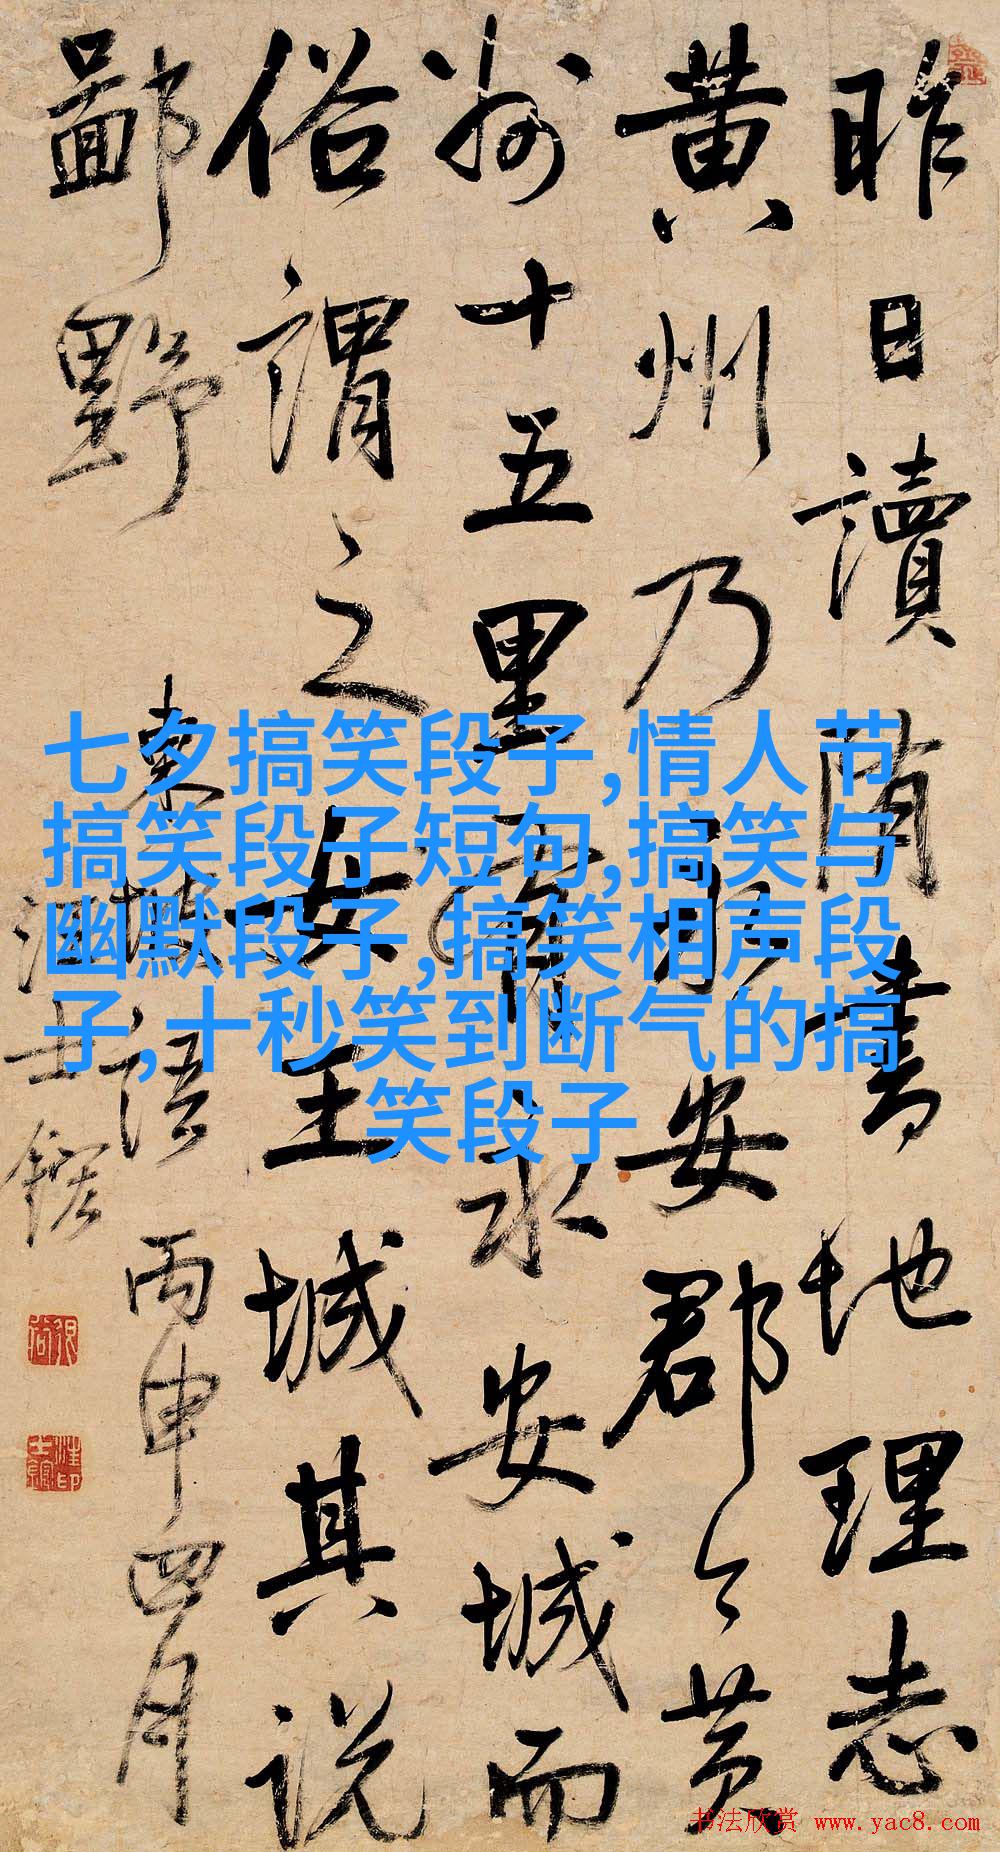 昨日讀隋書地理志
黄州乃永安郡今黄
州十五里永安城而
俗謂之女王城其説
鄙野
東坡語 丙申四月
汪士鋐
七夕搞笑段子,情人节
搞笑段子短句,搞笑与
幽默段子,搞笑相声段
子,十秒笑到断气的搞
笑段子
书法欣赏 www.yac8.com